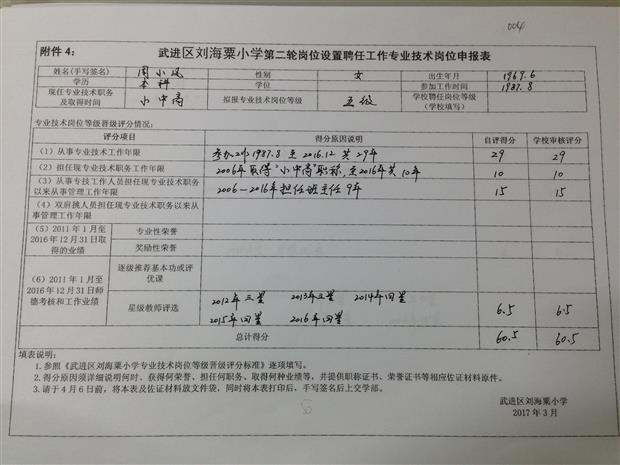 004
附件4：
武进区刘海粟小学第二轮岗位设置聘任工作专业技术岗位申报表
姓名(手写签名) 周小凤 性别 女 出生年月 1969.6
学历 本科 学位 参加工作时间 1987.8
现任专业技术职务及取得时间 小中高 拟报专业技术岗位等级 五级 学校聘任岗位等级(学校填写)
专业技术岗位等级晋级评分情况：
评分项目 得分原因说明 自评得分 学校审核评分
(1) 从事专业技术工作年限 参加工作1987.8至2016.12 共29年 29 29
(2) 担任现专业技术职务工作年限 2006年取得"小中高"职称，至2016年共10年 10 10
(3) 从事专技工作人员担任现专业技术职务以来从事管理工作年限 2006—2016年担任班主任9年 15 15
(4) 双肩挑人员担任现专业技术职务以来从事管理工作年限
(5) 2011年1月至2016年12月31日取得的业绩 专业性荣誉
奖励性荣誉
(6) 2011年1月至2016年12月31日师德考核和工作业绩 逐级推荐基本功或评优课
星级教师评选 2012年三星 2013年三星 2014年四星 6.5 6.5
2015年四星 2016年四星
总计得分 60.5 60.5
填表说明：
1.参照《武进区刘海粟小学专业技术岗位等级晋级评分标准》逐项填写。
2.得分原因须详细说明何时、获得何荣誉、担任何职务、取得何种业绩等，并提供职称证书、荣誉证书等相应佐证材料原件。
3.请于4月6日前，将本表及佐证材料放文件袋，同时将本表打印后，手写签名后上交学部。
武进区刘海粟小学
2017年3月